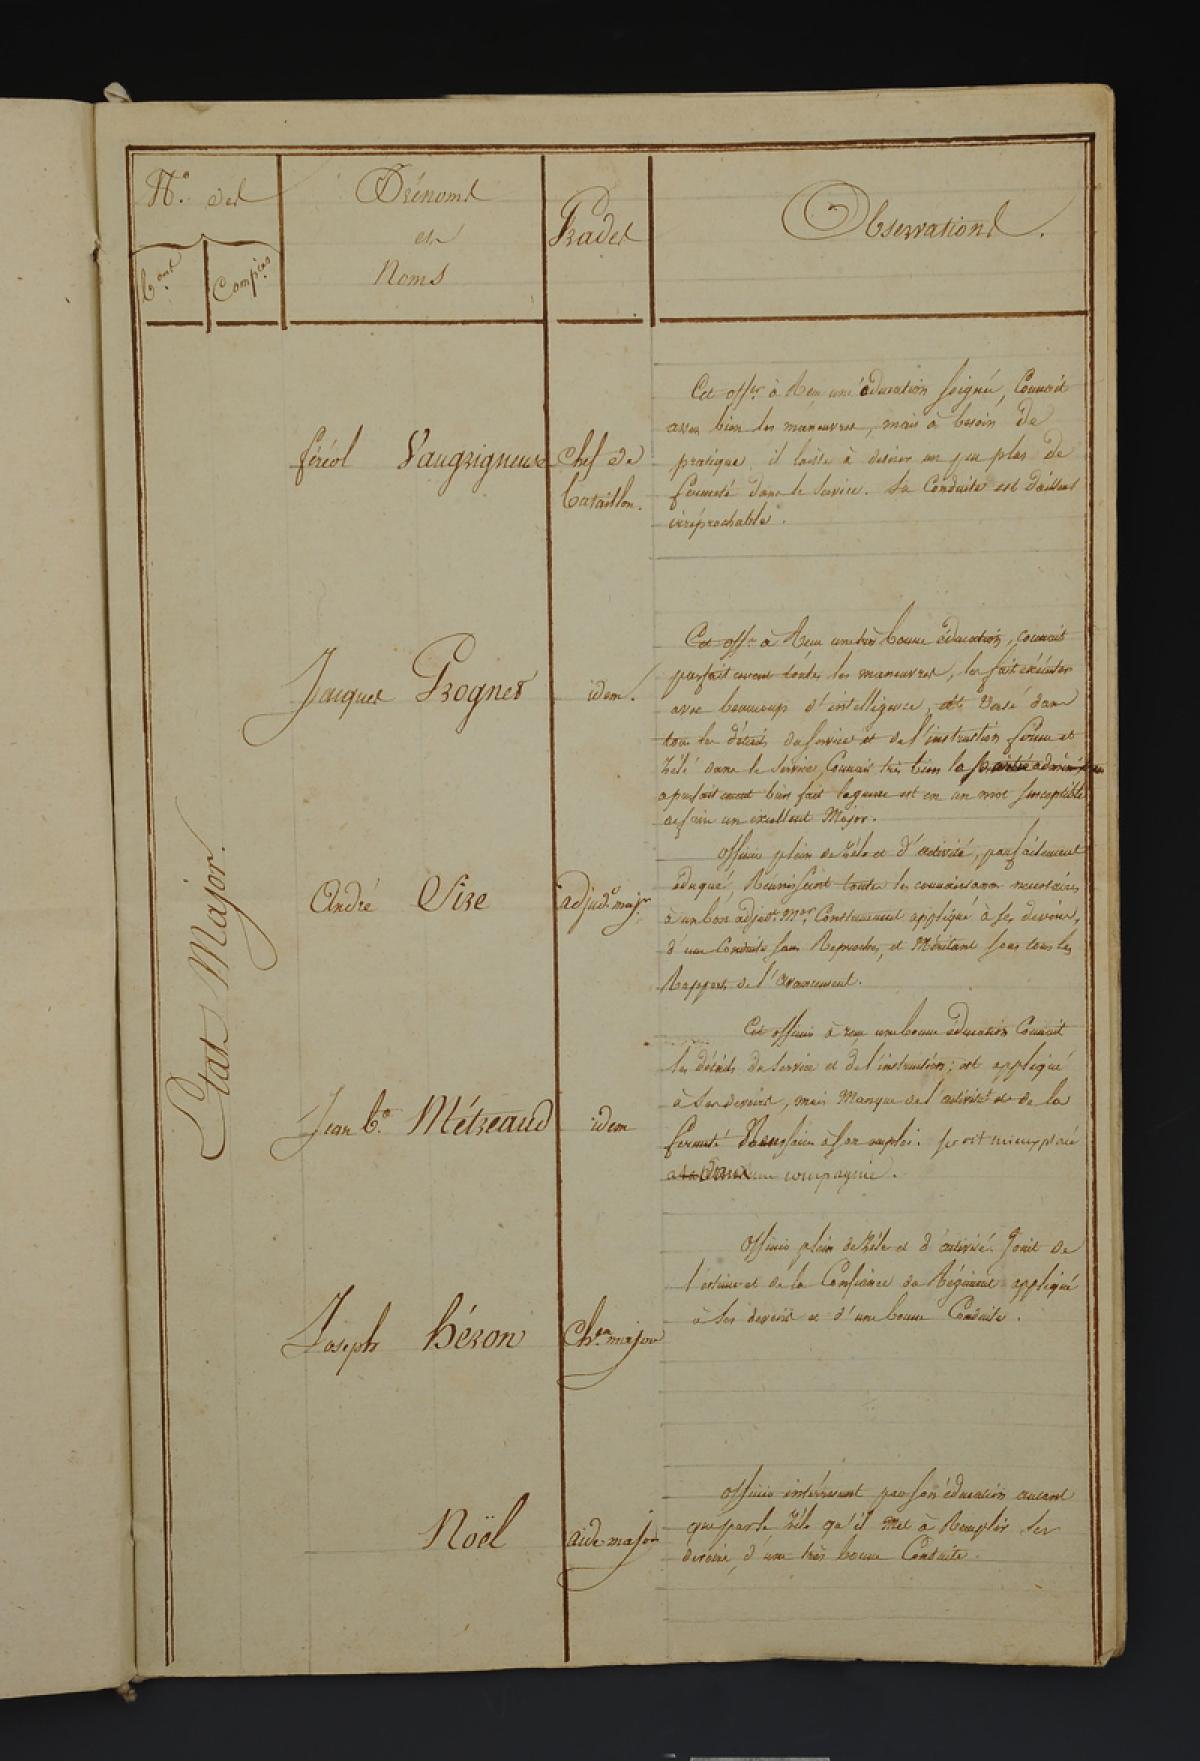 N.o des
Prénoms
et
Noms
Grades
Observations.
b.ons
Comp.ies
Etat Major.
féréol Vaugrigneuse
Chef de
bataillon.
Cet off.er à Reçu une éducation soigné, Connait
assez bien les manœuvres, mais à besoin de
pratique, il laisse à desirer un peu plus de
fermeté dans le service. Sa Conduite est d'ailleurs
irréprochable.
Jacques Prognet
idem.
Cet off.r à Reçu une très bonne éducation, connait
parfaitement toutes les manœuvres, les fait exécuter
avec beaucoup d'intelligence, est Versé dans
tous les détails du service et de l'instruction ferme et
zélé dans le service, Connait très bien la partie
a parfaitement bien fait la guerre est en un mot susceptible
de faire un excellent Major.
André Size
adjud.t maj.r
Officier plein de zèle et d'activité, parfaitement
éduqué, Réunissant toutes les connaissances necessaires
à un bon adjud.t M.or, Constamment appliqué à ses devoirs,
d'une Conduite sans Reproches, et Méritant sous tous les
Rapports de l'avancement.
Jean b.te Métreaud
idem
Cet officier à reçu une bonne éducation Connait
les détails du service et de l'instruction; est appliqué
à ses devoirs, mais Manque de l'activité et de la
fermeté Necessaire à son emploi. serait mieux placé
dans une compagnie.
Joseph héron
Ch.en major
Officier plein de zèle et d'activité. Jouit de
l'estime et de la Confiance du Régiment appliqué
à ses devoirs et d'une bonne Conduite.
Noël
aide major
Officier intéressant par son éducation autant
que par le zèle qu'il Met à Remplir ses
devoirs, d'une très bonne Conduite.